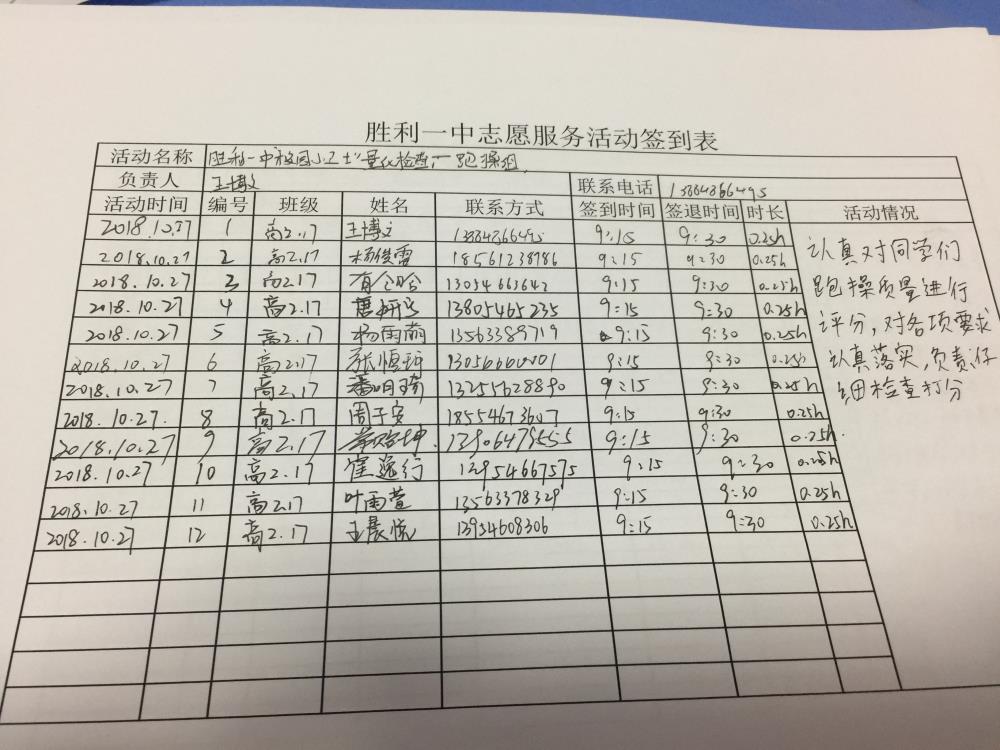 胜利一中志愿服务活动签到表
活动名称 胜利一中校园小卫士量化检查—跑操组
负责人 王博文 联系电话 13884866495
活动时间 编号 班级 姓名 联系方式 签到时间 签退时间 时长 活动情况
2018.10.27 1 高2.17 王博文 13884866495 9:15 9:30 0.25h
2018.10.27 2 高2.17 杨俊雷 18561238786 9:15 9:30 0.25h
2018.10.27 3 高2.17 13054663642 9:15 9:30 0.25h
2018.10.27 4 高2.17 13805465235 9:15 9:30 0.25h
2018.10.27 5 高2.17 杨雨萌 13563389719 9:15 9:30 0.25h
2018.10.27 6 高2.17 9:15 9:30 0.25h
2018.10.27 7 高2.17 13255628890 9:15 9:30 0.25h
2018.10.27. 8 高2.17 周子安 18554673607 9:15 9:30 0.25h
2018.10.27 9 高2.17 9:15 9:30 0.25h.
2018.10.27 10 高2.17 崔逸行 12954667575 9:15 9:30 0.25h
2018.10.27 11 高2.17 叶雨萱 13563378329 9:15 9:30 0.25h
2018.10.27 12 高2.17 王晨悦 13954608306 9:15 9:30 0.25h
认真对同学们
跑操质量进行
评分,对各项要求
认真落实,负责仔
细检查打分